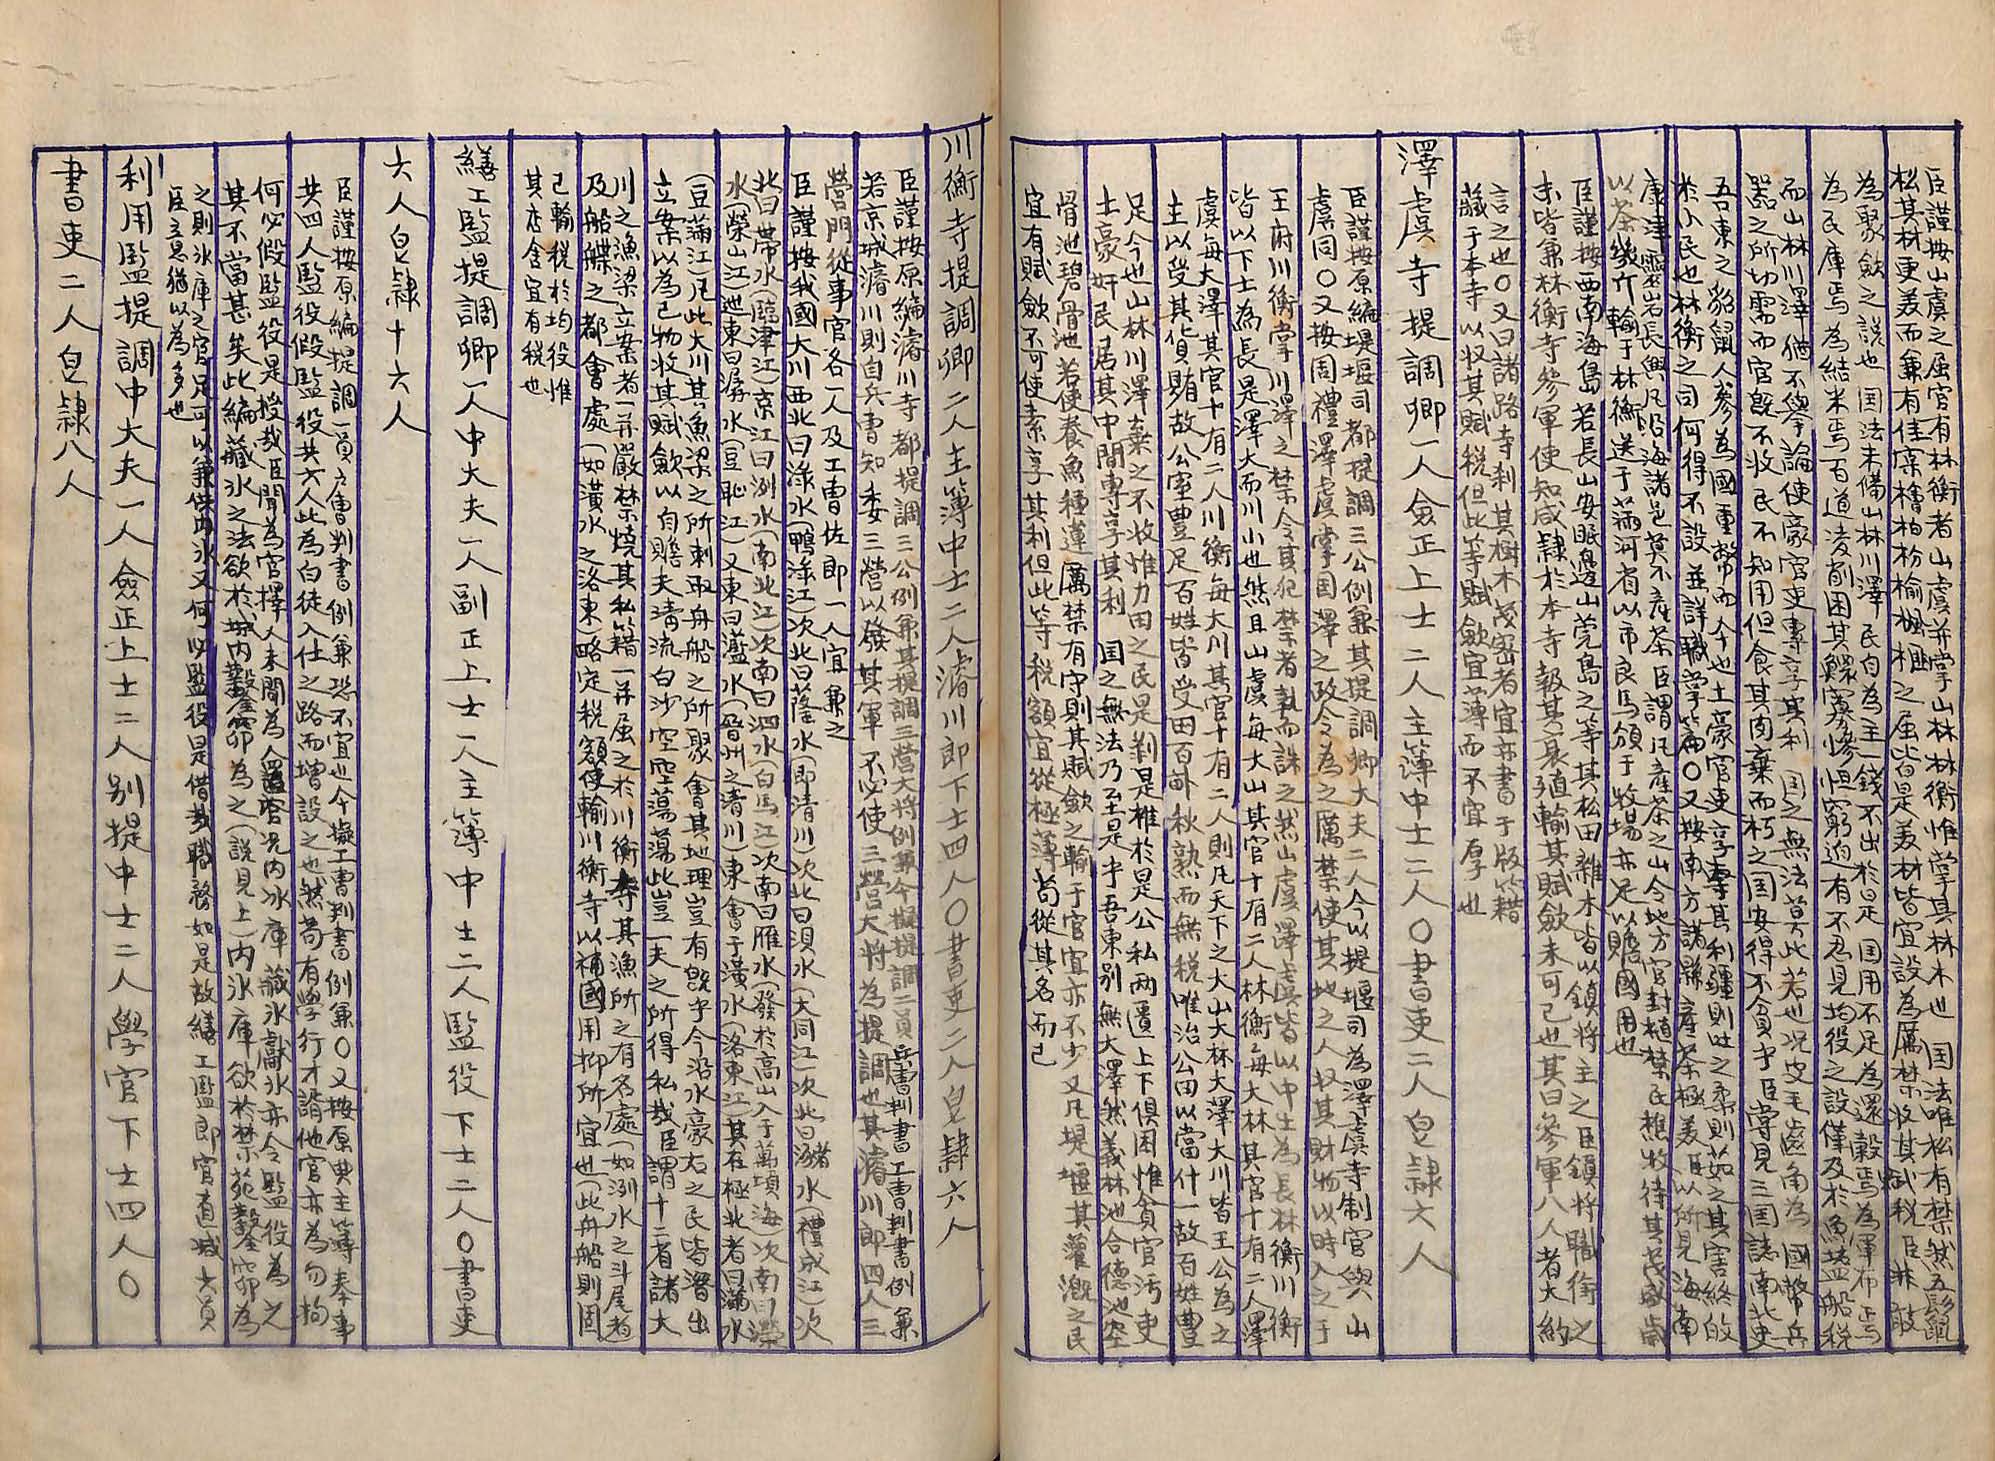 臣謹按山虞之屬官有林衡者山虞并掌山林林衡惟掌其林木也国法唯松有禁然五鬣
松其材更美而兼有佳者檜柏枌榆楓榧之屬皆是美材皆宜設為厲禁收其賦稅臣非敢
為聚斂之說也国法未備山林川澤民自為主一錢不出於是国用不足為還穀焉為軍布焉
為民庫焉為結米焉百道凌削困其鰥寡慘怛窮迫有不忍見均役之設僅及於魚塩船稅
而山林川澤猶不擧論使豪官吏專享其利国之無法莫此若也况皮毛齒角為國幣兵
器之所切需而官旣不收民不知用但食其肉棄而朽之国安得不貧乎臣嘗見三国誌南北史
吾東之貂鼠人參為國重幣而今也土豪官吏享專其利疆則吐之柔則茹之其害終故
於小民也林衡之司何得不設並詳職掌篇〇又按南方諸縣産茶極美臣以所見海南
康津靈岩長興凡沿海諸邑莫不産茶臣謂凡産茶之山令地方官封植禁民樵牧待其茂盛歲
以茶幾斤輸于林衡送于滿河省以市良馬頒于牧場亦足以贍國用也
臣謹按西南海島若長山安眠邊山莞島之等其松田雜木皆以鎮將主之臣鎮將職銜之
末皆兼林衡寺參軍使知咸隸於本寺報其衰殖輸其賦斂未可已也其曰參軍八人者大約
言之也〇又曰諸路寺刹其樹木茂密者宜亦書于版籍
藏于本寺以收其賦稅但此等賦斂宜薄而不宜厚也
澤虞寺提調卿一人僉正上士二人主簿中士二人〇書吏二人皂隸六人
臣謹按原編堤堰司都提調三公例兼其提調卿大夫二人今以提堰司為澤虞寺制官與山
虞同〇又按周禮澤虞掌国澤之政令為之厲禁使其地之人收其財物以時入之于
王府川衡掌川澤之禁令其犯禁者執而誅之然山虞澤虞皆以中士為長林衡川衡
皆以下士為長是澤大而川小也然且山虞每大山其官十有二人林衡每大林其官十有二人澤
虞每大澤其官十有二人川衡每大川其官十有二人則凡天下之大山大林大澤大川皆王公為之
主以受其貨賄故公室豊足百姓皆受田百畝秋熟而無稅唯治公田以當什一故百姓豊
足今也山林川澤棄之不收惟力田之民是剝是椎於是公私兩匱上下俱困惟貪官汚吏
土豪奸民居其中間專享其利国之無法乃至是乎吾東別無大澤然義林池合德池空
骨池碧骨池若使養魚種蓮厲禁有守則其賦斂之輸于官宜亦不少又凡堤堰其灌漑之民
宜有賦斂不可使素享其利但此等稅額宜從極薄苟從其名而已
川衡寺提調卿二人主簿中士二人濬川郎下士四人〇書吏二人皂隸六人
臣謹按原編濬川寺都提調三公例兼其提調三營大將例兼今擬提調二員兵曹判書工曹判書例兼
若京城濬川則自兵曹知委三營以發其軍不必使三營大將為提調也其濬川郎四人三
營門從事官各一人及工曹佐郎一人宜兼之
臣謹按我國大川西北曰淥水(鴨淥江)次北曰薩水(即清川)次北曰浿水(大同江)次北曰瀦水(禮成江)次
北曰帶水(臨津江)京江曰洌水(南北江)次南曰泗水(白馬江)次南曰雁水(發於高山入于萬頃海)次南曰瀯
水(榮山江)迆東曰潺水(豆恥江)又東曰灆水(晉州之清川)東會于潢水(洛東江)其在極北者曰滿水
(豆滿江)凡此大川其魚梁之所刺取舟船之所聚會其地理豈有旣乎今沿水豪右之民皆潛出
立案以為己物收其賦斂以自贍夫淸流白沙空空蕩蕩此豈一夫之所得私哉臣謂十二省諸大
川之漁梁立案者一并嚴禁燒其私籍一并屬之於川衡寺其漁所之有名處(如洌水之斗尾者)
及船艓之都會處(如潢水之洛東)略定稅額使輸川衡寺以補國用抑所宜也(此舟船則固
己輸稅於均役惟
其店舍宜有稅也
繕工監提調卿一人中大夫一人副正上士一人主簿中士二人監役下士二人〇書吏
六人皂隸十六人
臣謹按原編提調一員戶曹判書例兼恐不宜也今擬工曹判書例兼〇又按原典主簿奉事
共四人監役假監役共六人此為白徒入仕之路而增設之也然苟有學行才諝他官亦為勿拘
何必假監役是授哉臣聞為官擇人未聞為人置官况內冰庫藏氷獻氷亦令監役為之
其不當甚矣此編藏氷之法欲於城內鑿窌為之(說見上)內氷庫欲於禁苑鑿窌為
之則氷庫之官足可以兼供內氷又何必監役是借哉職務如是故繕工監郎官直減六員
臣之思猶以為多也
利用監提調中大夫一人僉正上士二人別提中士二人學官下士四人〇
書吏二人皂隸八人